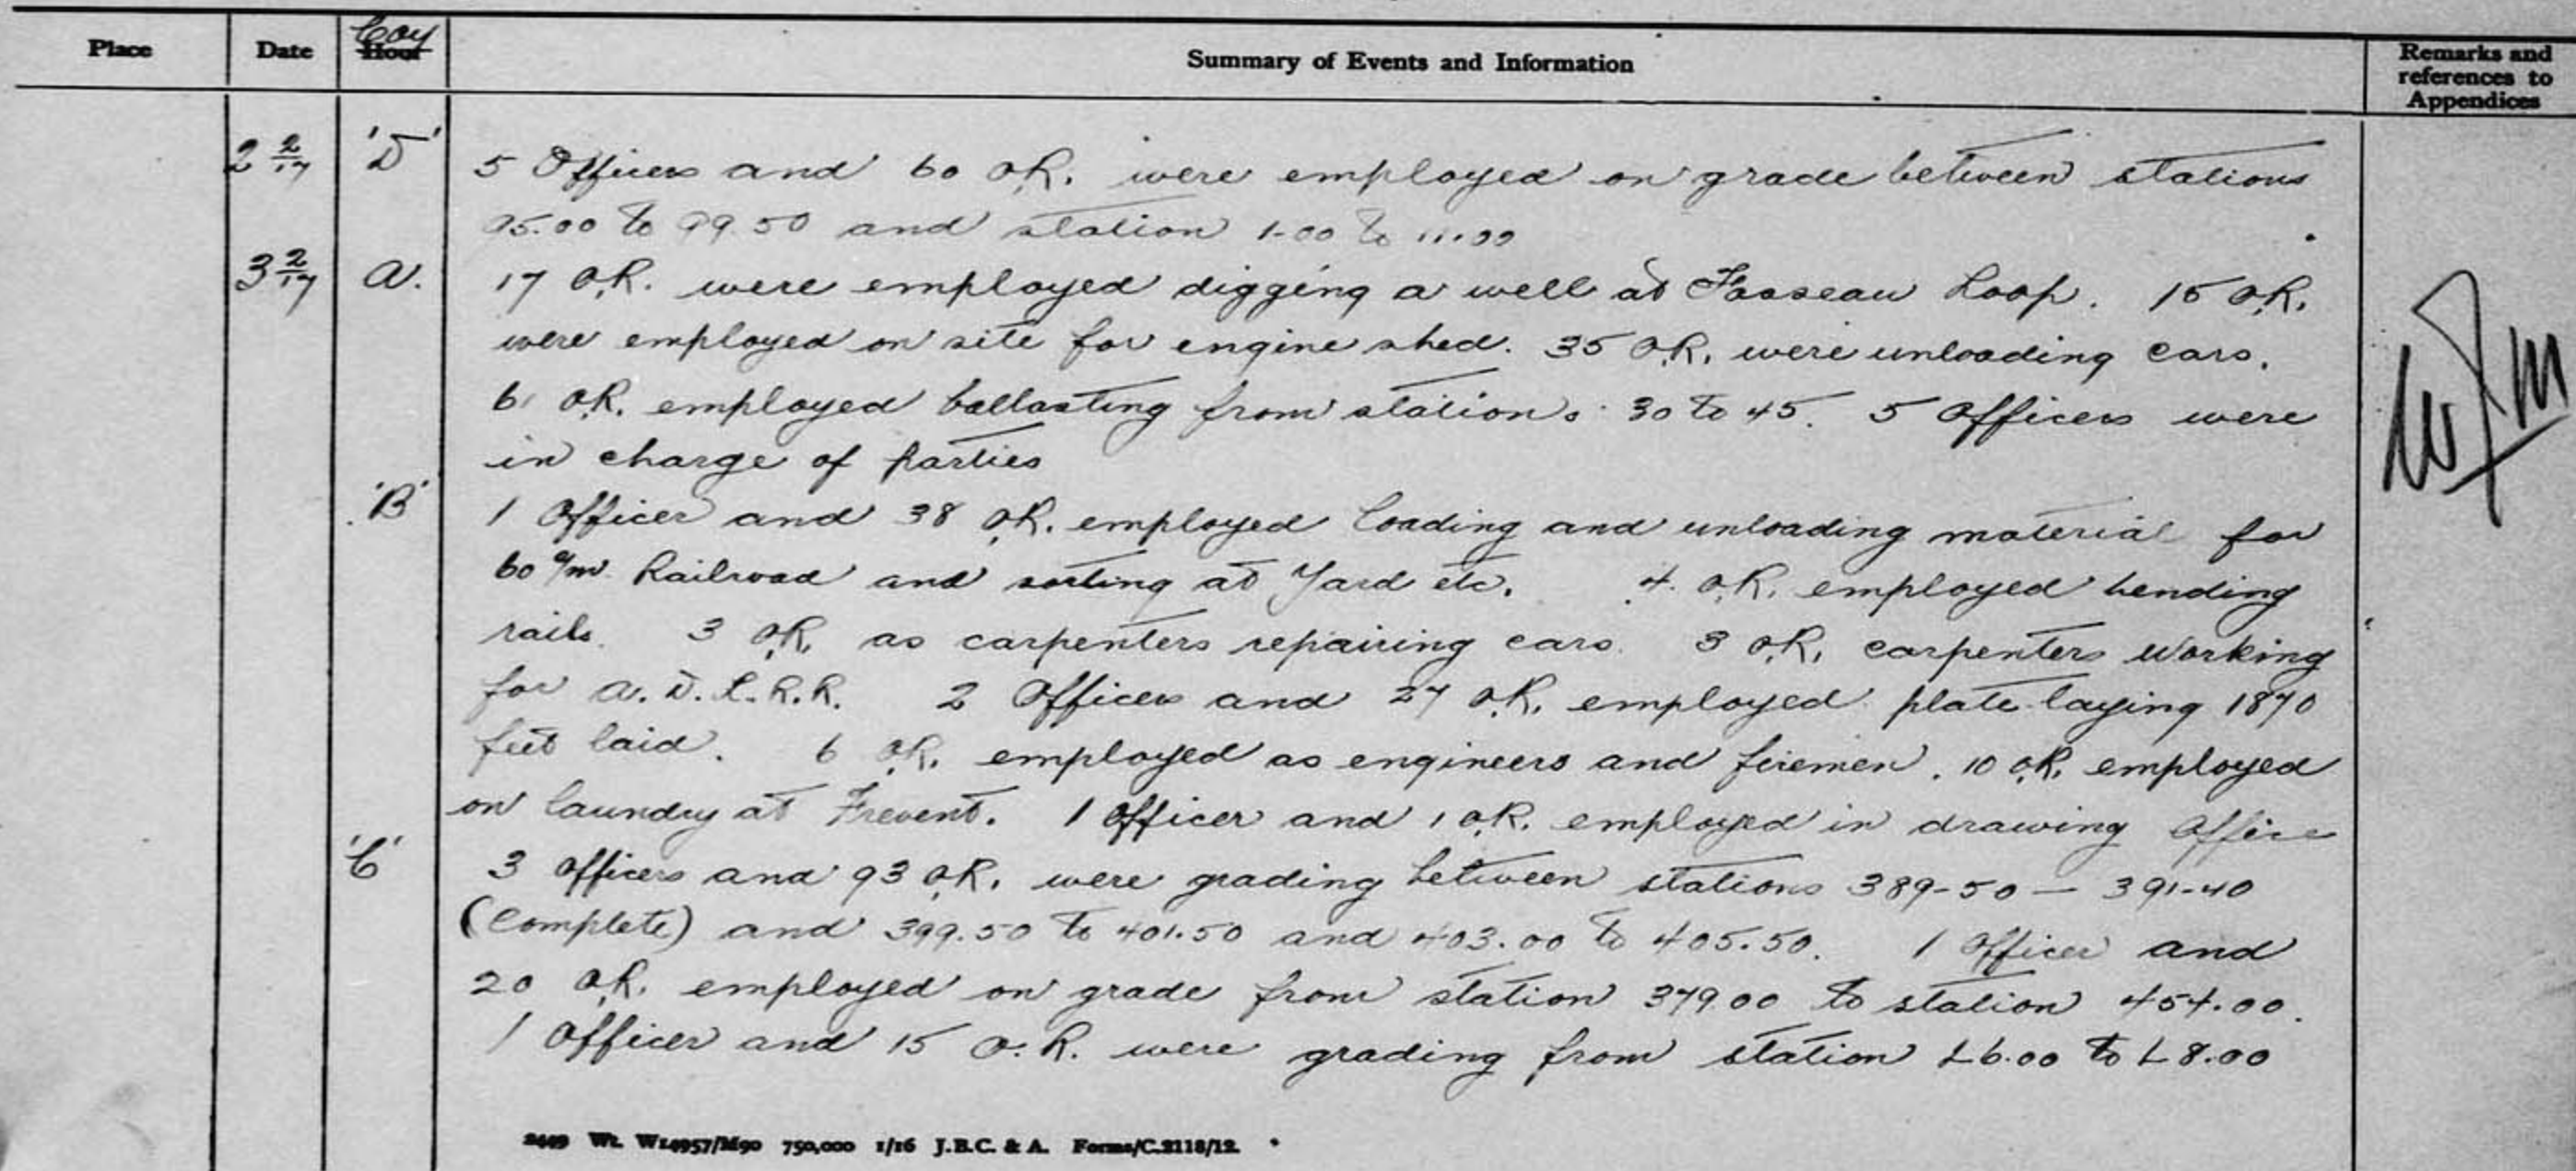 Place Date Coy Hour Summary of Events and Information Remarks and references to Appendices
2 2/17 'D' 5 Officers and 60 O.R. were employed on grade between stations
95.00 to 99.50 and station 1-00 to 11.00
3 2/17 A. 17 O.R. were employed digging a well at Fosseau Loop. 15 O.R.
were employed on site for engine shed. 35 O.R. were unloading cars.
61 O.R. employed ballasting from stations 30 to 45. 5 Officers were
in charge of parties
'B' 1 Officer and 38 O.R. employed loading and unloading material for
60 c/m Railroad and sorting at Yard etc. 4 O.R. employed bending
rails. 3 O.R. as carpenters repairing cars. 3 O.R. carpenters working
for A.D.L.R.R. 2 Officers and 27 O.R. employed plate laying 1870
feet laid. 6 O.R. employed as engineers and firemen. 10 O.R. employed
on laundry at Frevent. 1 Officer and 1 O.R. employed in drawing Office
'C' 3 Officers and 93 O.R. were grading between stations 389-50 — 391-40
(Complete) and 399.50 to 401.50 and 403.00 to 405.50. 1 Officer and
20 O.R. employed on grade from station 379.00 to station 454.00.
1 Officer and 15 O.R. were grading from station L6.00 to L8.00
2449 Wt. W14957/M90 750,000 1/16 J.B.C. & A. Forms/C.2118/12.